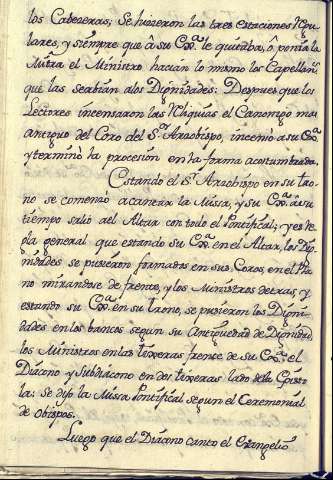 los Cabezeras; Se hizieron las tres estaciones regu
lares, y siempre que â su Exª. le quitaba, ô ponia la
Mitra el Ministro hacian lo mismo los Capellanˢ
que las serbian alos Dignidades: Despues que los
Lectores incensaron las Reliquias el Canonigo mas
antiguo del Coro del Sʳ. Arzobispo, incensó a su Exª.
y terminó la procesion en la forma acostumbrada.
Estando el Sʳ. Arzobispo en su tro
no se comenzó acantar la Missa, y su Exª. asu
tiempo salió ael Altar con todo el Pontifical; y es re
gla general que estando su Exª. en el Altar, los Dig
nidades se pusieron formados en sus Coros, en el Pla
no mirandose de frente, y los Ministros detras; y
estando su Exª. en su trono, se pusieron los Digni
dades en los bancos segun su Antiguedad de Dignidad
los Ministros en las tixeras frente de su Exª. el
Diacono y Subdiacono en dos tixeras lado de la Episto
la: Se dijo la Missa Pontifical segun el Ceremonial
de obispos.
Luego que el Diacono canto el Evangelio